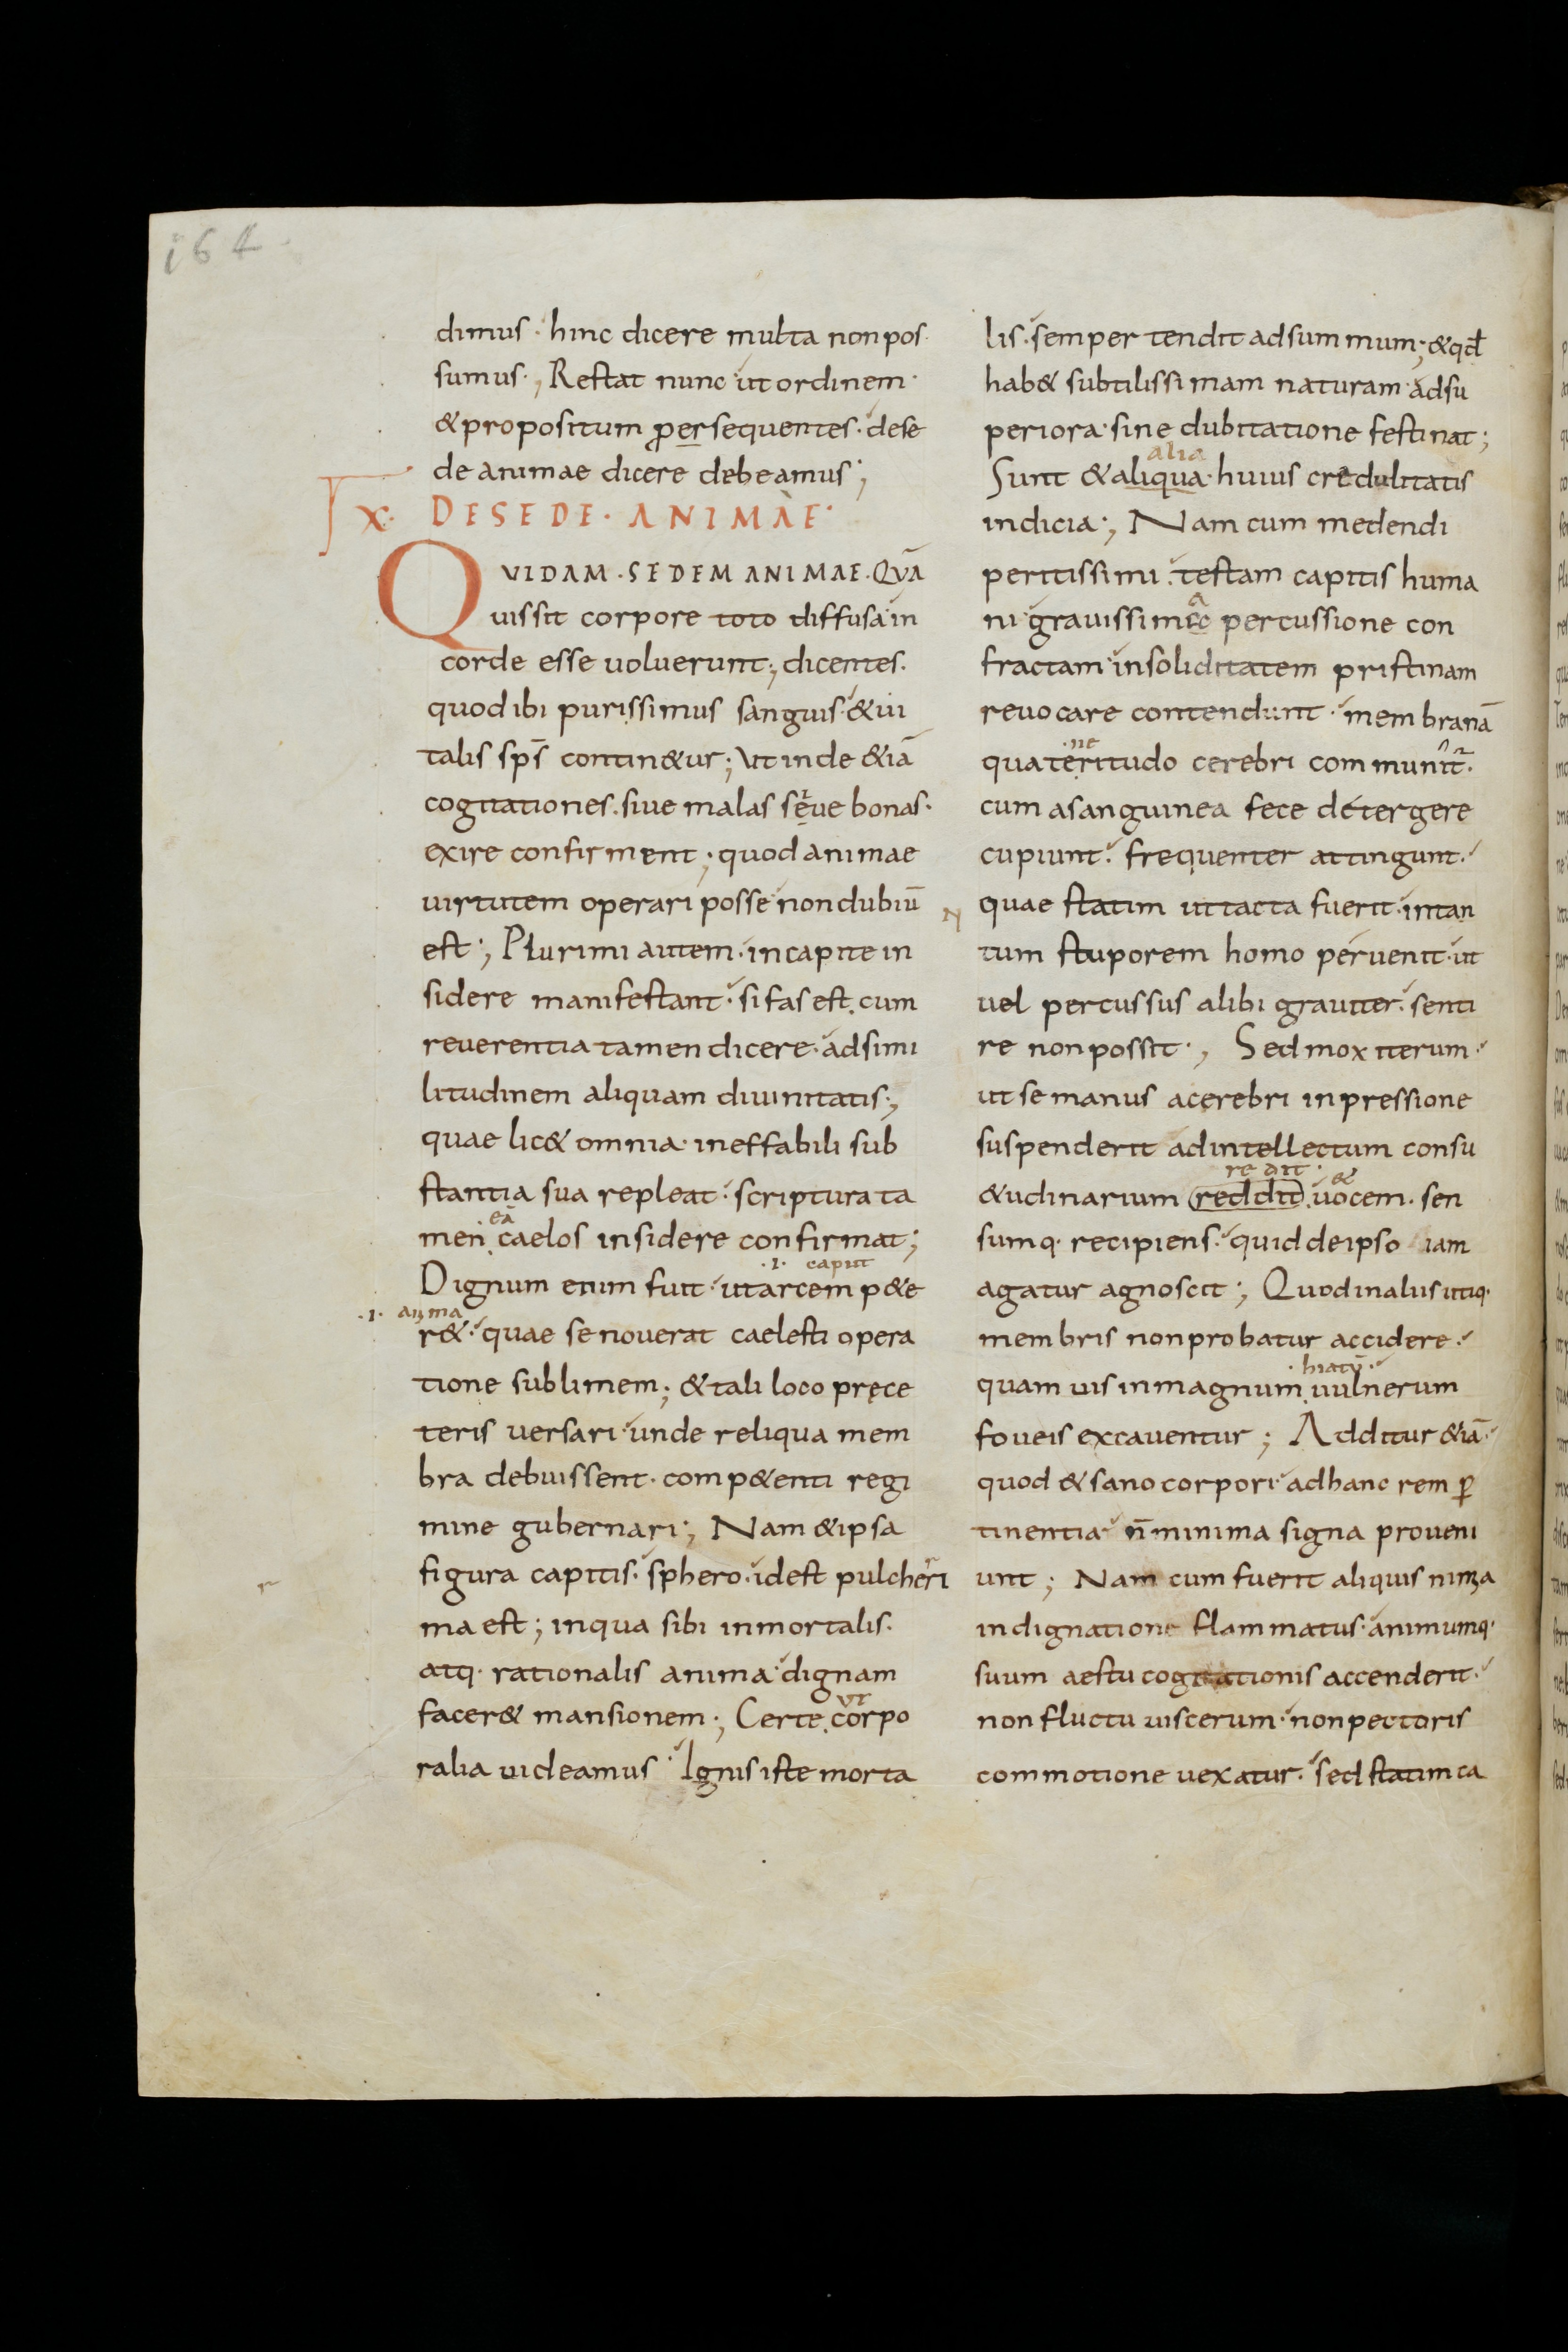 164
dimus· hinc dicere multa non pos
sumus·, Restat nunc ut ordinem·
& propositum persequentes· dese
de animae dicere debeamus;
x· DE SEDE· ANIMAE·
QVIDAM· SEDEM ANIMAE· QVĀ
uis sit corpore toto diffusa in
corde esse uoluerunt; dicentes·
quod ibi purissimus sanguis· & ui
talis sp̄s contin&ur; Ut inde &iā
cogitationes· siue malas seue bonas·
exire confirment; quod animae
uirtutem operari posse non dubiū
est; Plurimi autem· in capite in
sidere manifestant· si fas est· cum
reuerentia tamen dicere· ad simi
litudinem aliquam diuinitatis;
quae lic& omnia· ineffabili sub
stantia sua repleat· scriptura ta
eā
men caelos insidere confirmat;
·i· caput
Dignum enim fuit· ut arcem p&e
·i· anima
r&· quae se nouerat caelesti opera
tione sublimem; & tali loco pręce
teris versari· unde reliqua mem
bra debuissent· comp&enti regi
mine gubernari; Nam & ipsa
figura capitis· sphero· id est pulcheri
ma est; in qua sibi inmortalis·
atq· rationalis anima· dignam
ut
facer& mansionem; Certe corpo
ralia uideamus· Ignis iste morta
lis· semper tendit ad summum; & qđ
hab& subtilissimam naturam· ad su
periora· sine dubitatione festinat;
alia
Sunt & aliqua· huius credulitatis
indicia·, Nam cum medendi
peritissimi· testam capitis huma
ni· grauissima percussione con
fractam· in soliditatem pristinam
reuocare contendunt· membranā
·ne
qua teritudo cerebri communit·
cum a sanguinea fece detergere
cupiunt· frequenter attingunt·
quae statim ut tacta fuerit· in tan
tum stuporem homo peruenit· ut
uel percussus alibi grauiter· senti
re non possit·, Sed mox iterum·
ut se manus a cerebri inpressione
suspenderit ad intellectum consu
re dit· &
&udinarium reddit· uocem· sen
sumq· recipiens· quid de ipso iam
agatur agnoscit; Quod in aliis utiq·
membris non probatur accidere·
·hiatū·
quam uis in magnum uulnerum
foueis excauentur; Additur &iā·
quod & sano corpori· ad hanc rem ꝑ
tinentia· n̄ minima signa proueni
unt; Nam cum fuerit aliquis nimia
indignatione flammatus· animumq·
suum aestu cogitationis accenderit·
non fluctu uiscerum· non pectoris
commotione uexatur· sed statim ca